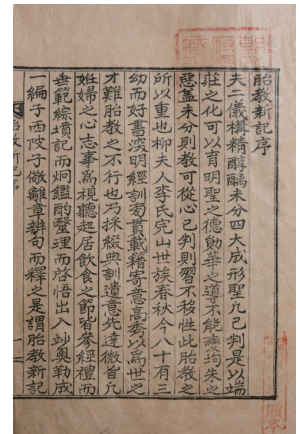 胎教新記序
夫二儀構精醇醨未分四大成形聖凡已判是以端
莊之化可以育明聖之德勳華之道不能變均朱之
惡盖未分則教可從心已判則習不移性此胎教之
所以重也柳夫人李氏完山世族春秋今八十有三
幼而好書深明經訓旁貫載籍寄意高秀以爲世之
才難胎教之不行也乃採綴典訓遺意先達微旨凡
妊婦之心志事爲視聽起居飲食之節皆參經禮而
垂範綜墳記而炯鑑酌毉理而啓悟出入妙奧勒成
一編子西陂子儆離章辨句而釋之是謂胎教新記
胎教新記序